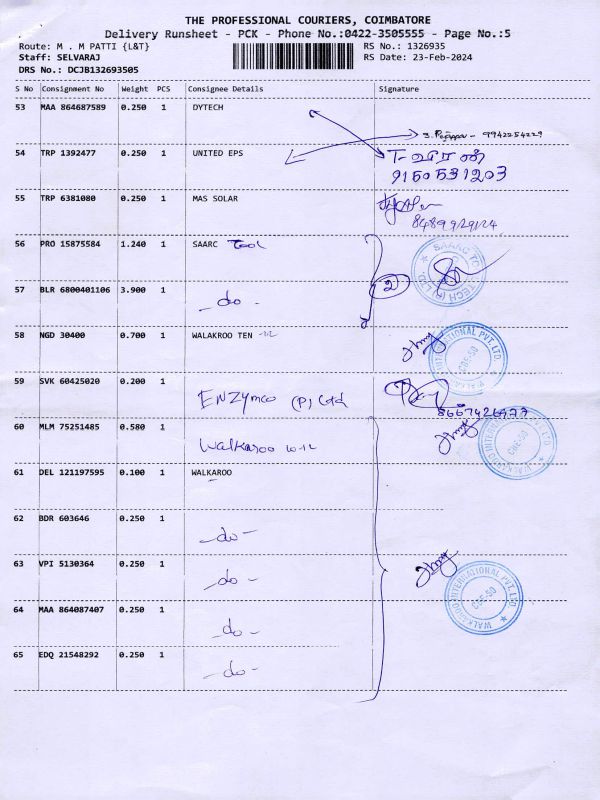 THE PROFESSIONAL COURIERS, COIMBATORE
Delivery Runsheet - PCK - Phone No.:0422-3505555 - Page No.:5
Route: M . M PATTI {L&T} RS No.: 1326935
Staff: SELVARAJ RS Date: 23-Feb-2024
DRS No.: DCJB132693505
S No Consignment No Weight PCS Consignee Details Signature
53 MAA 864687589 0.250 1 DYTECH
9942254229
54 TRP 1392477 0.250 1 UNITED EPS
9150531203
55 TRP 6381080 0.250 1 MAS SOLAR
56 PRO 15875584 1.240 1 SAARC Tool
57 BLR 6800401106 3.900 1 - do - 2
58 NGD 30400 0.700 1 WALAKROO TEN -12
59 SVK 60425020 0.200 1 ENZymco (P) Ltd
60 MLM 75251485 0.580 1 Walkaroo 10-12
61 DEL 121197595 0.100 1 WALKAROO
62 BDR 603646 0.250 1 - do -
63 VPI 5130364 0.250 1 - do -
64 MAA 864087407 0.250 1 - do -
65 EDQ 21548292 0.250 1 - do -
WALKAROO INTERNATIONAL PVT. LTD. CBE-50